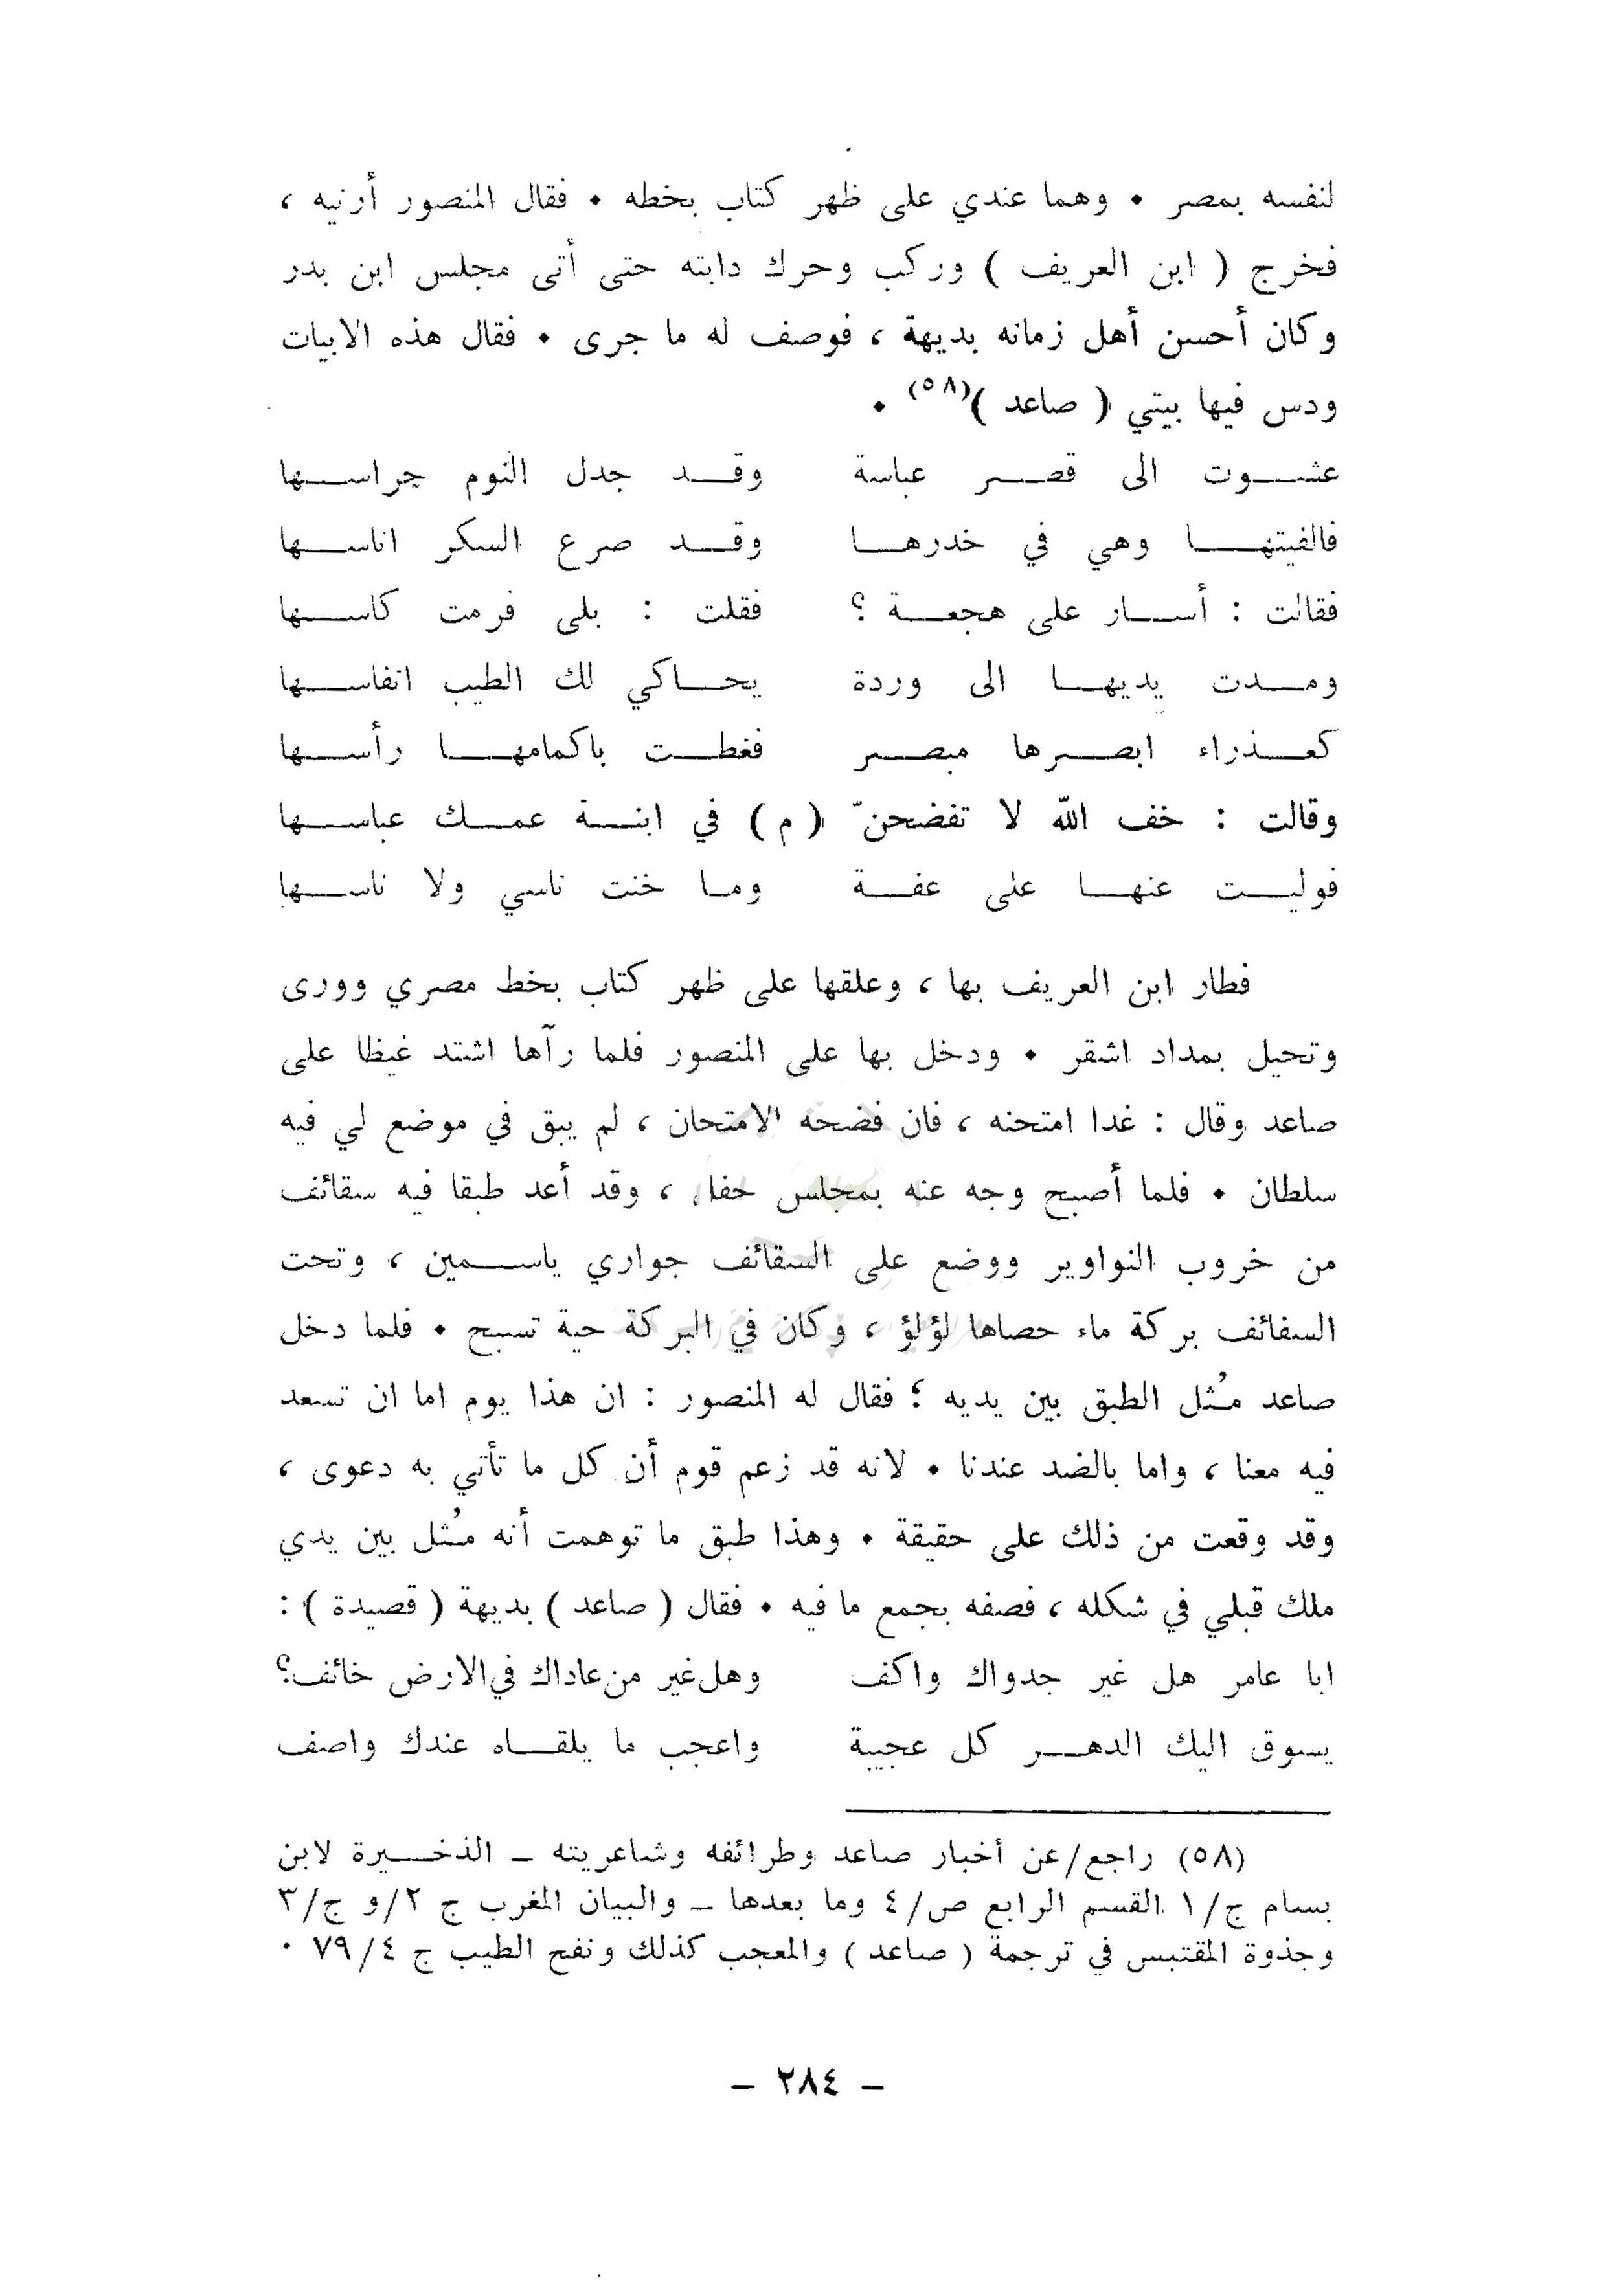 لنفسه بمصر • وهما عندي على ظهر كتاب بخطه • فقال المنصور أرنيه ،
فخرج ( ابن العريف ) وركب وحرك دابته حتى أتى مجلس ابن بدر
وكان أحسن أهل زمانه بديهة ، فوصف له ما جرى • فقال هذه الابيات
ودس فيها بيتي ( صاعد )(٥٨) •
عشوت الى قصر عباسة وقد جدل النوم جراسها
فالفيتها وهي في خدرها وقد صرع السكر اناسها
فقالت : أسار على هجعة ؟ فقلت : بلى فرمت كاسها
ومدت يديها الى وردة يحاكي لك الطيب انفاسها
كعذراء ابصرها مبصر فغطت باكمامها رأسها
وقالت : خف الله لا تفضحنّ ( م ) في ابنة عمك عباسها
فوليت عنها على عفة وما خنت ناسي ولا ناسها
فطار ابن العريف بها ، وعلقها على ظهر كتاب بخط مصري وورى
وتحيل بمداد اشقر • ودخل بها على المنصور فلما رآها اشتد غيظا على
صاعد وقال : غدا امتحنه ، فان فضحه الامتحان ، لم يبق في موضع لي فيه
سلطان • فلما أصبح وجه عنه بمجلس حفل ، وقد أعد طبقا فيه سقائف
من خروب النواوير ووضع على السقائف جواري ياسمين ، وتحت
السفائف بركة ماء حصاها لؤلؤ ، وكان في البركة حية تسبح • فلما دخل
صاعد مُثل الطبق بين يديه ؛ فقال له المنصور : ان هذا يوم اما ان تسعد
فيه معنا ، واما بالضد عندنا • لانه قد زعم قوم أن كل ما تأتي به دعوى ،
وقد وقعت من ذلك على حقيقة • وهذا طبق ما توهمت أنه مُثل بين يدي
ملك قبلي في شكله ، فصفه بجمع ما فيه • فقال ( صاعد ) بديهة ( قصيدة ) :
ابا عامر هل غير جدواك واكف وهل غير من عاداك في الارض خائف؟
يسوق اليك الدهر كل عجيبة واعجب ما يلقاه عندك واصف
(٥٨) راجع/عن أخبار صاعد وطرائفه وشاعريته – الذخيرة لابن
بسام ج/١ القسم الرابع ص/٤ وما بعدها – والبيان المغرب ج ٢/و ج/٣
وجذوة المقتبس في ترجمة ( صاعد ) والمعجب كذلك ونفح الطيب ج ٧٩/٤ •
– ٢٨٤ –